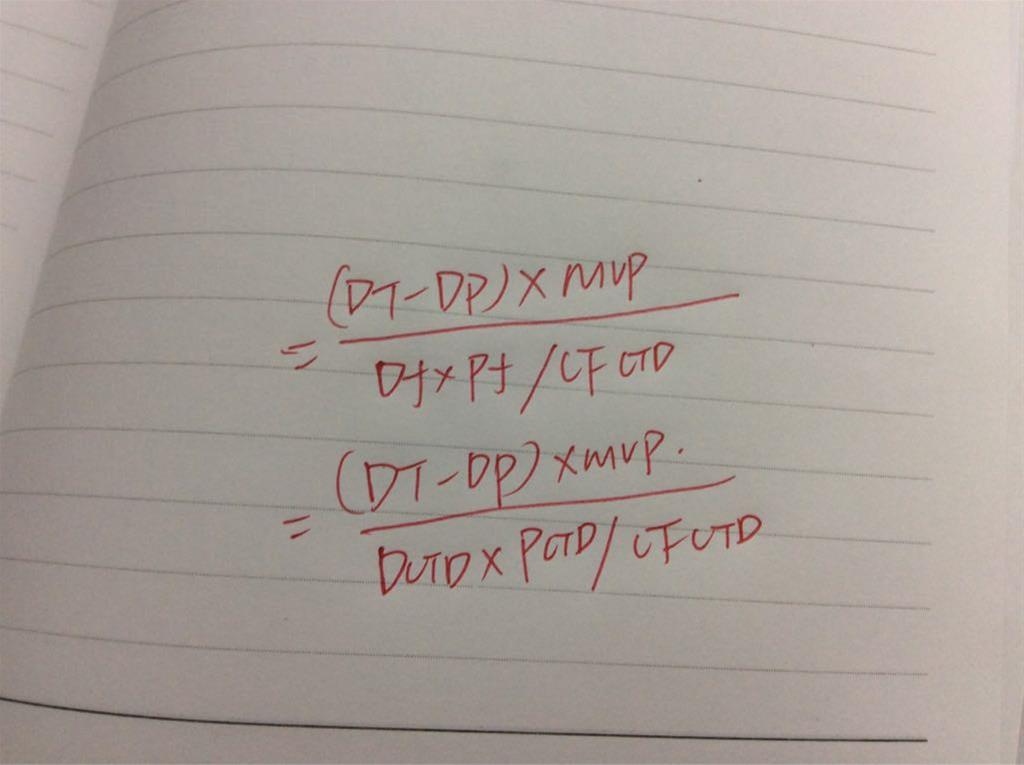 = (DT-DP) x MVP
Df x Pf / CF CTD
= (DT-DP) x MVP.
DCTD x PCTD / CFCTD